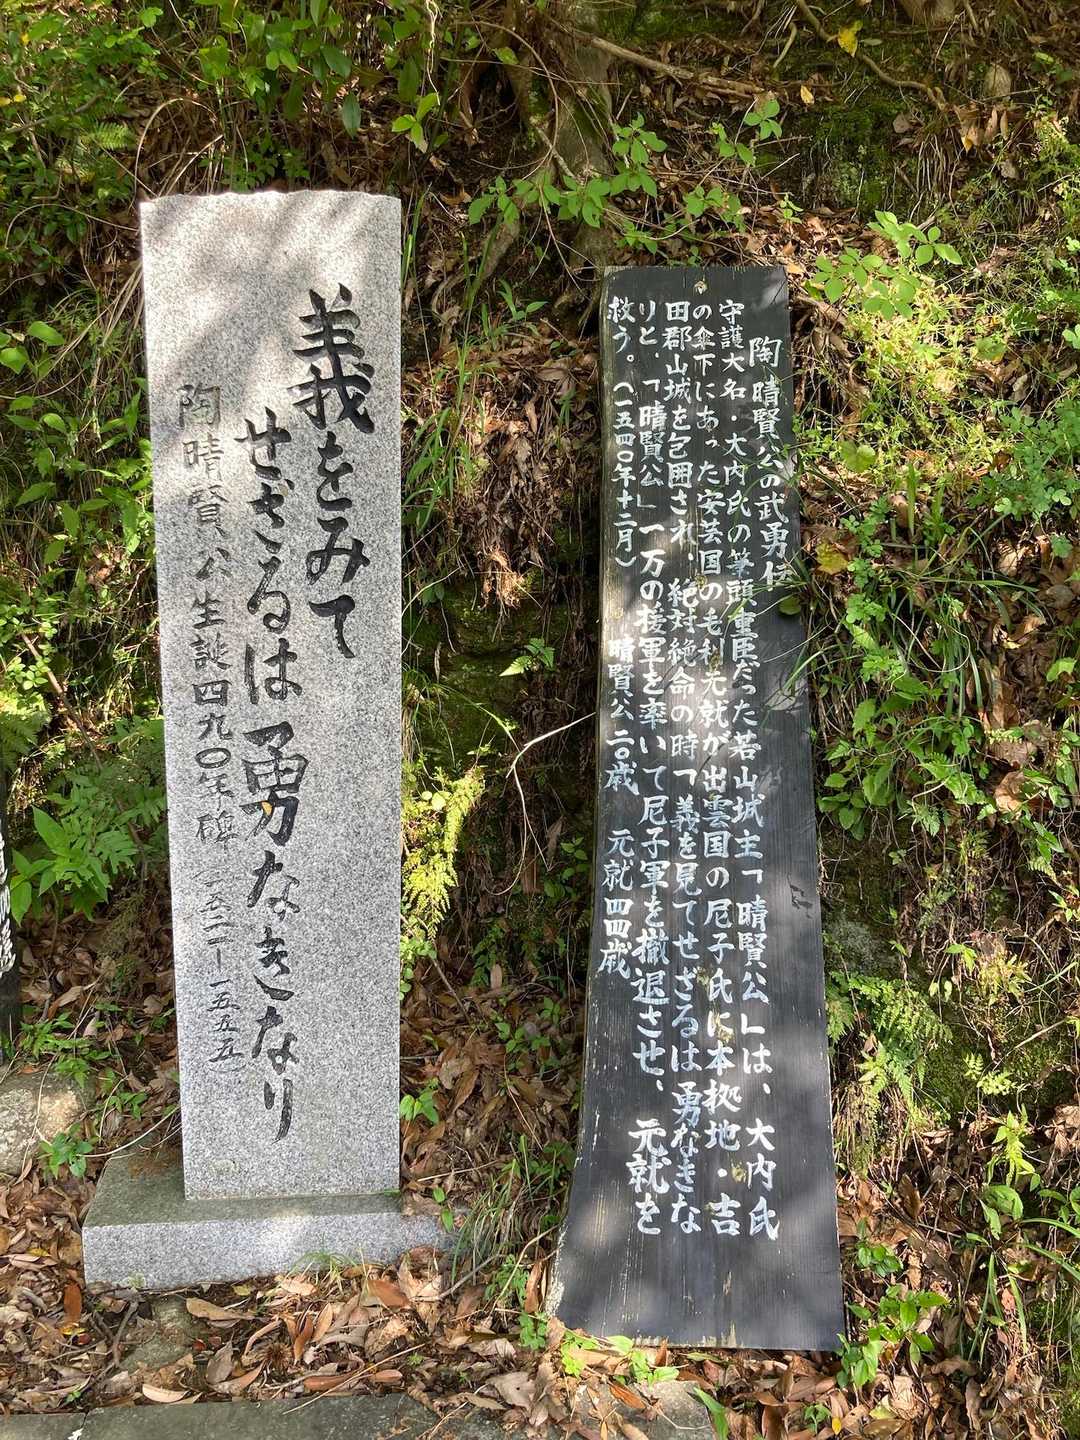 義をみて
せざるは勇なきなり
陶晴賢公生誕四九〇年碑(一五二一-一五五五)
陶晴賢公の武勇伝
守護大名・大内氏の筆頭重臣だった若山城主「晴賢公」は、大内氏
の傘下にあった安芸国の毛利元就が出雲国の尼子氏に本拠地・吉
田郡山城を包囲され、絶対絶命の時「義を見てせざるは勇なきな
りと、「晴賢公」一万の援軍を率いて尼子軍を撤退させ、元就を
救う。(一五四〇年十二月) 晴賢公二〇歳 元就四四歳